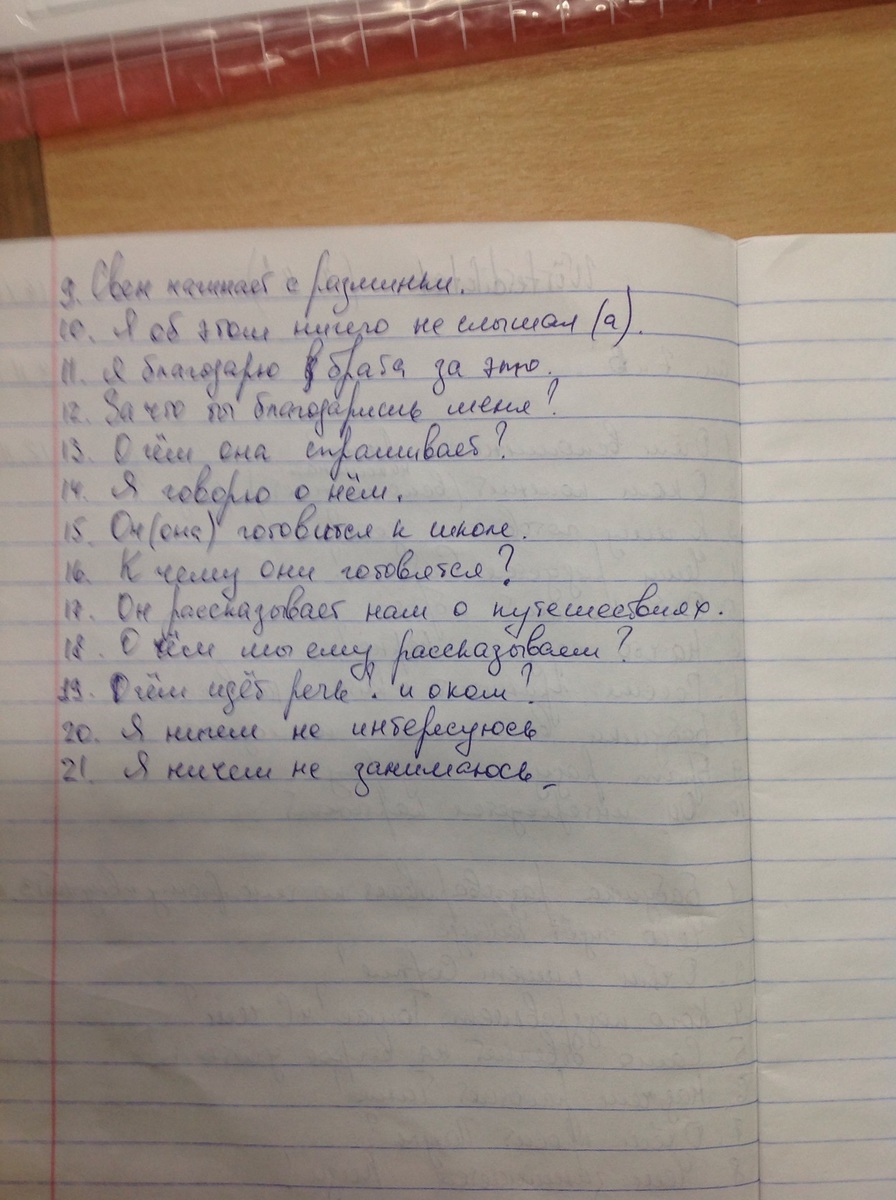 9. Свен начинает с разминки.
10. Я об этом ничего не слышал (а).
11. Я благодарю брата за это.
12. За что ты благодаришь меня?
13. О чём она спрашивает?
14. Я говорю о нём.
15. Он (она) готовится к школе.
16. К чему они готовятся?
17. Он рассказывает нам о путешествиях.
18. О чём мы ему рассказываем?
19. О чём идёт речь? и о ком?
20. Я ничем не интересуюсь
21. Я ничем не занимаюсь